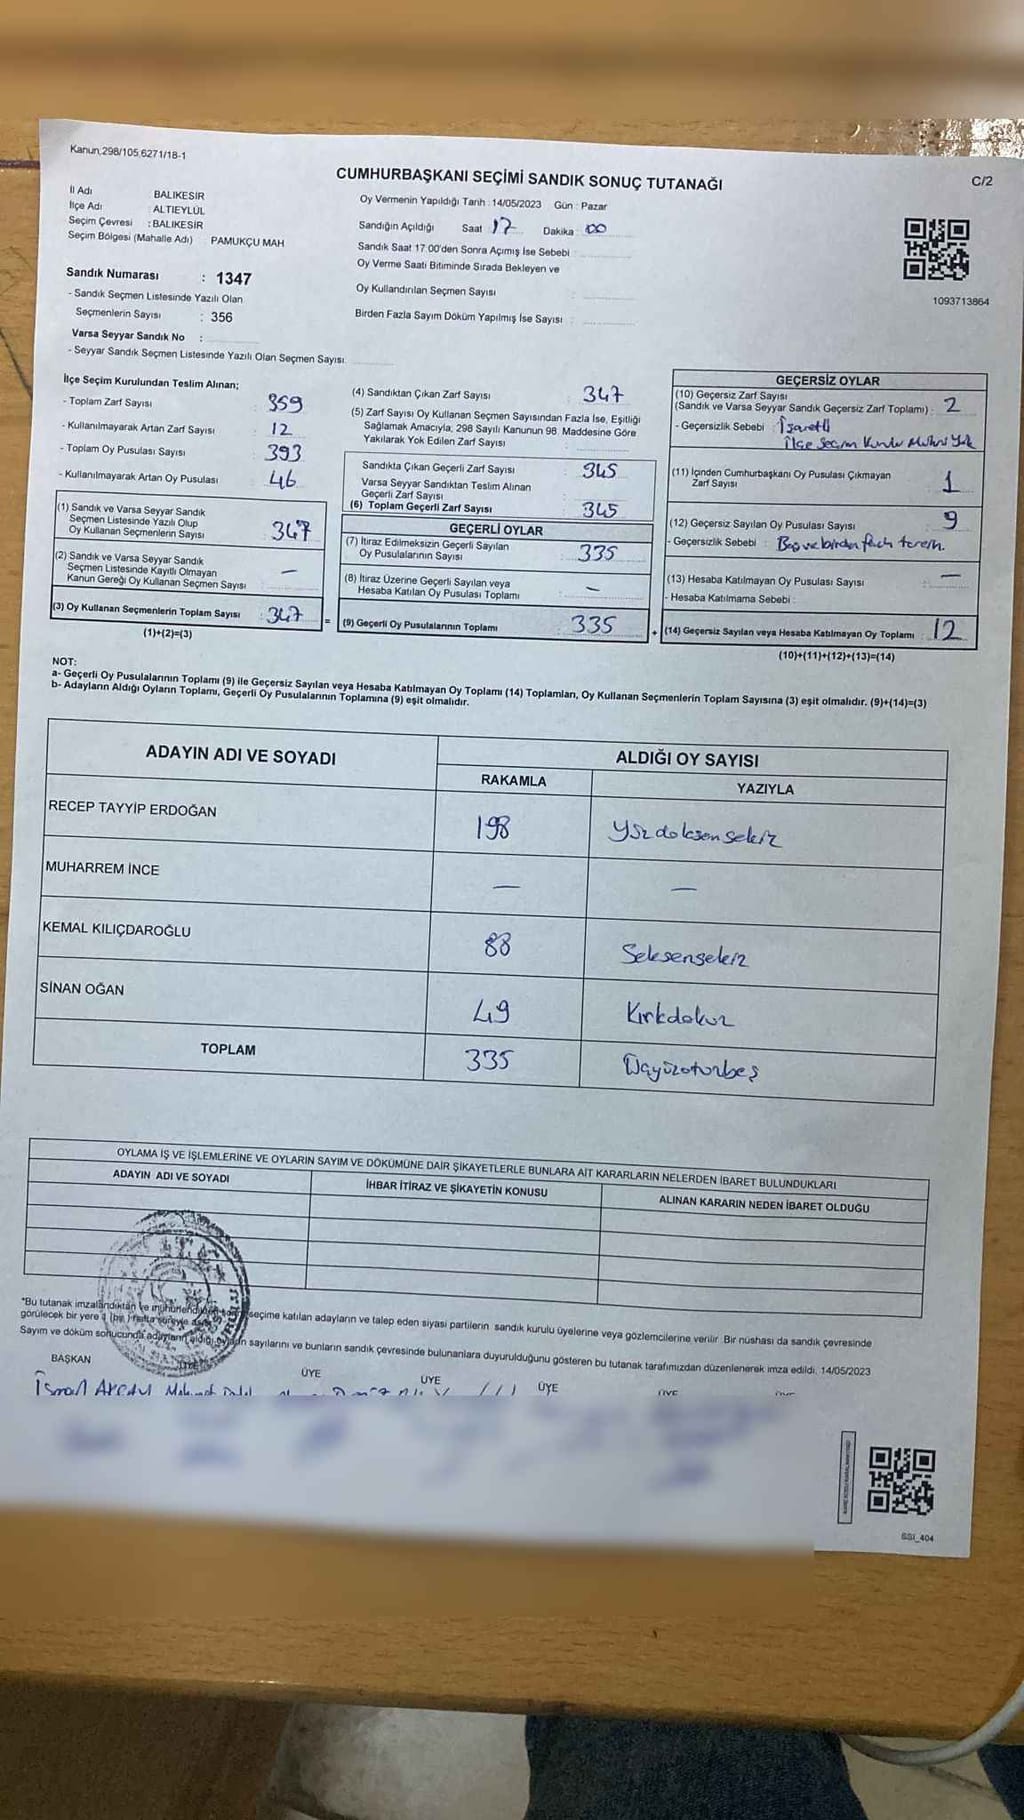 Kanun,298/105,6271/18-1
CUMHURBAŞKANI SEÇİMİ SANDIK SONUÇ TUTANAĞI
C/2
İl Adı BALIKESİR
İlçe Adı : ALTIEYLÜL
Seçim Çevresi : BALIKESİR
Seçim Bölgesi (Mahalle Adı) PAMUKÇU MAH
Oy Vermenin Yapıldığı Tarih : 14/05/2023 Gün : Pazar
Sandığın Açıldığı Saat 17 Dakika : 00
Sandık Saat 17:00'den Sonra Açımış İse Sebebi :
Oy Verme Saati Bitiminde Sırada Bekleyen ve
Oy Kullandırılan Seçmen Sayısı :
Birden Fazla Sayım Döküm Yapılmış İse Sayısı :
1093713864
Sandık Numarası : 1347
- Sandık Seçmen Listesinde Yazılı Olan
Seçmenlerin Sayısı : 356
Varsa Seyyar Sandık No :
- Seyyar Sandık Seçmen Listesinde Yazılı Olan Seçmen Sayısı:
İlçe Seçim Kurulundan Teslim Alınan;
- Toplam Zarf Sayısı : 359
- Kullanılmayarak Artan Zarf Sayısı : 12
- Toplam Oy Pusulası Sayısı : 393
- Kullanılmayarak Artan Oy Pusulası : 46
(1) Sandık ve Varsa Seyyar Sandık
Seçmen Listesinde Yazılı Olup
Oy Kullanan Seçmenlerin Sayısı : 347
(2) Sandık ve Varsa Seyyar Sandık
Seçmen Listesinde Kayıtlı Olmayan
Kanun Gereği Oy Kullanan Seçmen Sayısı : —
(3) Oy Kullanan Seçmenlerin Toplam Sayısı : 347
(1)+(2)=(3)
(4) Sandıktan Çıkan Zarf Sayısı : 347
(5) Zarf Sayısı Oy Kullanan Seçmen Sayısından Fazla İse, Eşitliği
Sağlamak Amacıyla, 298 Sayılı Kanunun 98. Maddesine Göre
Yakılarak Yok Edilen Zarf Sayısı :
Sandıkta Çıkan Geçerli Zarf Sayısı : 345
Varsa Seyyar Sandıktan Teslim Alınan
Geçerli Zarf Sayısı :
(6) Toplam Geçerli Zarf Sayısı : 345
GEÇERLİ OYLAR
(7) İtiraz Edilmeksizin Geçerli Sayılan
Oy Pusulalarının Sayısı : 335
(8) İtiraz Üzerine Geçerli Sayılan veya
Hesaba Katılan Oy Pusulası Toplamı : —
= (9) Geçerli Oy Pusulalarının Toplamı : 335
GEÇERSİZ OYLAR
(10) Geçersiz Zarf Sayısı
(Sandık ve Varsa Seyyar Sandık Geçersiz Zarf Toplamı) : 2
- Geçersizlik Sebebi : İşaretli
İlçe Seçim Kurulu Mührü Yok
(11) İçinden Cumhurbaşkanı Oy Pusulası Çıkmayan
Zarf Sayısı : 1
(12) Geçersiz Sayılan Oy Pusulası Sayısı : 9
- Geçersizlik Sebebi : Boş ve birden fazla
(13) Hesaba Katılmayan Oy Pusulası Sayısı : —
- Hesaba Katılmama Sebebi :
+ (14) Geçersiz Sayılan veya Hesaba Katılmayan Oy Toplamı : 12
(10)+(11)+(12)+(13)=(14)
NOT:
a- Geçerli Oy Pusulalarının Toplamı (9) ile Geçersiz Sayılan veya Hesaba Katılmayan Oy Toplamı (14) Toplamları, Oy Kullanan Seçmenlerin Toplam Sayısına (3) eşit olmalıdır. (9)+(14)=(3)
b- Adayların Aldığı Oyların Toplamı, Geçerli Oy Pusulalarının Toplamına (9) eşit olmalıdır.
ADAYIN ADI VE SOYADI
ALDIĞI OY SAYISI
RAKAMLA YAZIYLA
RECEP TAYYİP ERDOĞAN 198 Yüzdoksansekiz
MUHARREM İNCE — —
KEMAL KILIÇDAROĞLU 88 Seksensekiz
SİNAN OĞAN 49 Kırkdokuz
TOPLAM 335 Üçyüzotuzbeş
OYLAMA İŞ VE İŞLEMLERİNE VE OYLARIN SAYIM VE DÖKÜMÜNE DAİR ŞİKAYETLERLE BUNLARA AİT KARARLARIN NELERDEN İBARET BULUNDUKLARI
ADAYIN ADI VE SOYADI İHBAR İTİRAZ VE ŞİKAYETİN KONUSU ALINAN KARARIN NEDEN İBARET OLDUĞU
*Bu tutanak imzalandıktan ve mühürlendikten seçime katılan adayların ve talep eden siyasi partilerin sandık kurulu üyelerine veya gözlemcilerine verilir. Bir nüshası da sandık çevresinde
görülecek bir yere 1 (bir) hafta süreyle asılır.
Sayım ve döküm sonucunda adayların aldığı oyların sayılarını ve bunların sandık çevresinde bulunanlara duyurulduğunu gösteren bu tutanak tarafımızdan düzenlenerek imza edildi. 14/05/2023
BAŞKAN ÜYE ÜYE ÜYE ÜYE ÜYE ÜYE
SSI_404